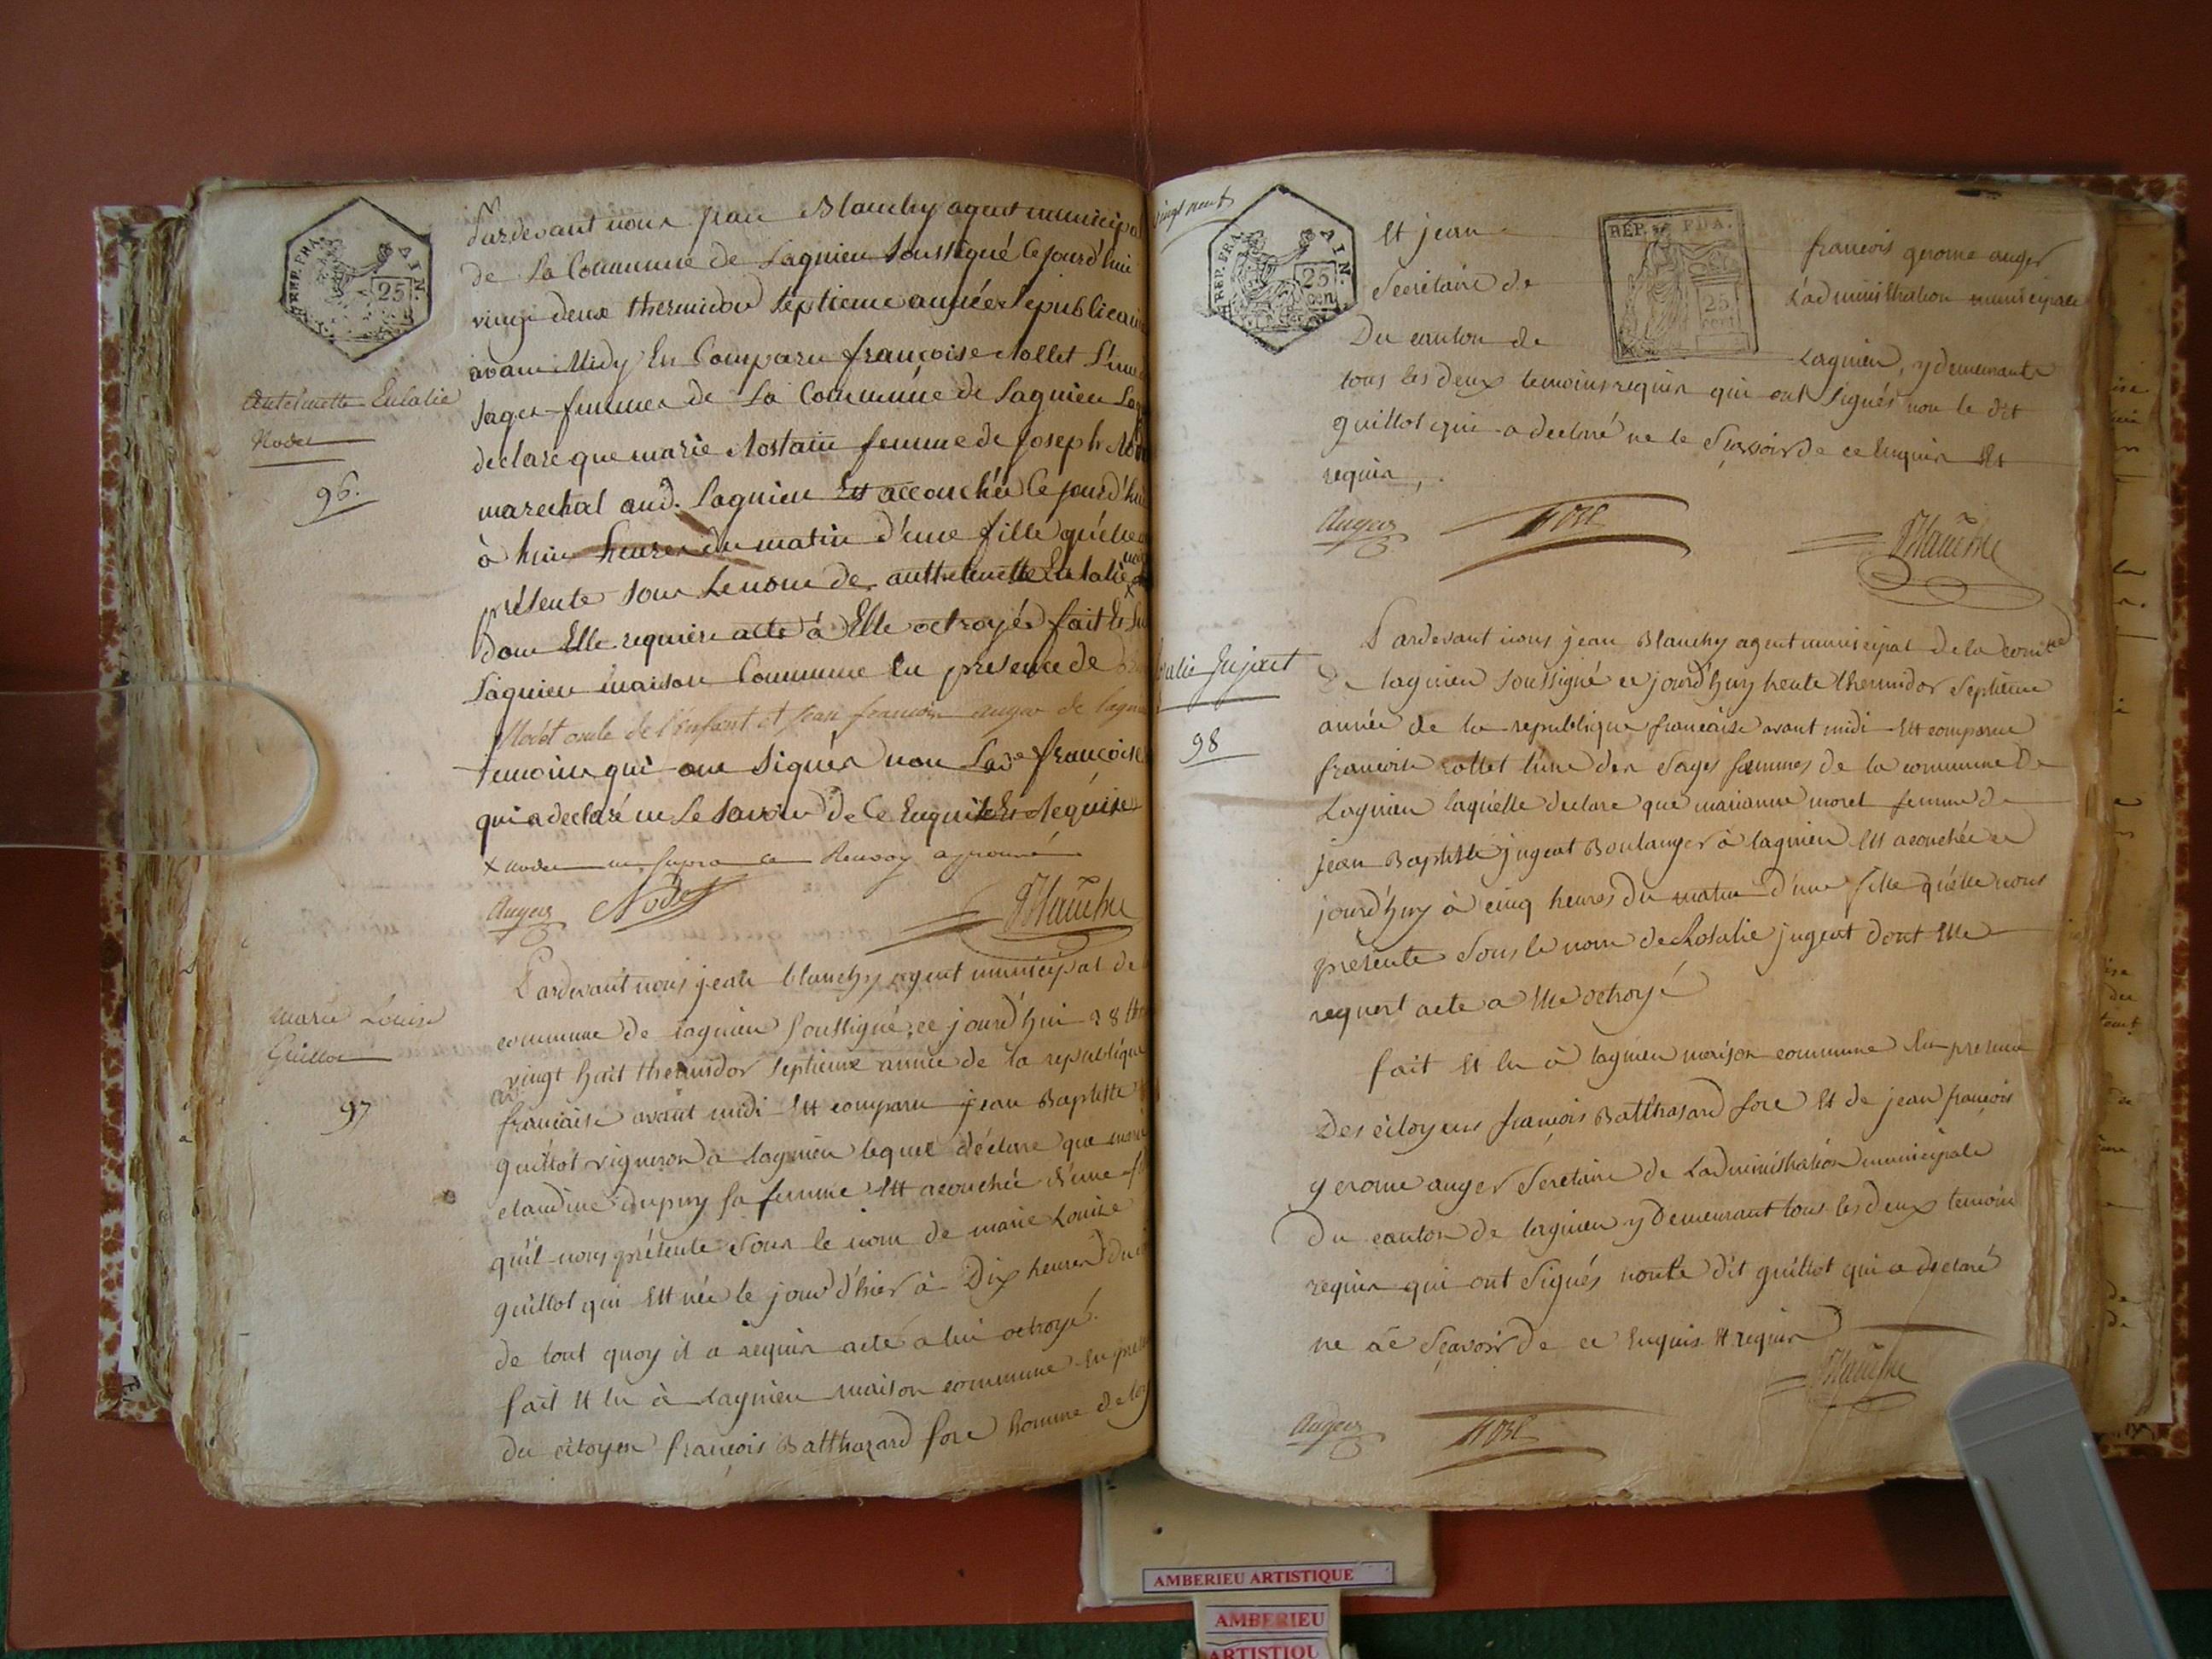 REP. FRA.
AIN.
25
Antoinette Eulalie
Nodet
96.
Pardevant nous jean Blanchy agent municipal
de la Commune de Lagnieu Soussigné Cejourd'hui
vingt deux thermidor Septieme année Republicaine
avant Midy Est Comparu françoise Rollet L'une
Sages-femmes de La Commune de Lagnieu
declare que marie Rostain femme de Joseph
marechal aud. Lagnieu Est accouchée Cejourd'hui
à huit heures du matin d'une fille quelle
présente sous Le nom de anthoinette Eulalie
dont Elle requiere acte à Elle octroyée fait Et Lu
Lagnieu maison Commune En presence de
Nodet oncle de l'enfant et Jean francois auger de lagnieu
temoins qui ont Signés non Lade francoise
qui a declaré ne Le savoir de Ce Enquise Et Requise
x nodet ut supra ce Renvoy approuvé
Augers Nodet Blanchy
Marie Louise
Guillot
97
Pardevant nous jean blanchy agent municipal de
commune de lagnieu soussigné, ce jourd'hui 28
vingt huit thermidor septieme année de la republique
francaise avant midi Est comparu jean Baptiste
guillot vigneron à lagnieu lequel déclare que marie
claudine dupuy sa femme Est acouchée d'une
qu'il nous présente sous le nom de marie Louise
guillot qui Est née le jour d'hier à Dix heures du
de tout quoy il a requis acte a lui octroyé.
fait Et lu à Lagnieu maison commune En
du citoyen françois Balthazard fore homme de loy
vingt neuf
REP. FRA.
AIN.
25
cen.
REP. FRA.
25
cent
Et jean francois gerome auger
Secrétaire de L'administration municipale
Du canton de Lagnieu, y demeurants
tous les deux temoins requis qui ont signés non le dit
guillot qui a declaré ne le sçavoir de ce Enquis Et
requis,
Augers fore Blanchy
Rosalie Jujeat
98
Pardevant nous jean Blanchy agent municipal de la comune
De lagnieu soussigné ce jourd'huy trente thermidor septieme
année de la republique francaise avant midi Est comparue
francoise rollet l'une des sages femmes de la commune De
Lagnieu laquelle declare que marianne morel femme de
jean Baptiste jugeat Boulanger à lagnieu Est acouchée ce
jourd'huy à cinq heures du matin d'une fille quelle nous
présente sous le nom de Rosalie jugeat dont Elle
requert acte a Elle octroyé
fait Et lu à lagnieu maison commune En presence
Des citoyens françois Balthasard fore Et de jean françois
gerome auger Secretaire de L'administration municipale
Du canton de lagnieu y Demeurant tous les deux temoins
requis qui ont signés non le dit guillot qui a declaré
ne le Sçavoir de ce Enquis Et requis
Blanchy
Augers fore
AMBERIEU ARTISTIQUE
AMBERIEU
ARTISTIQU